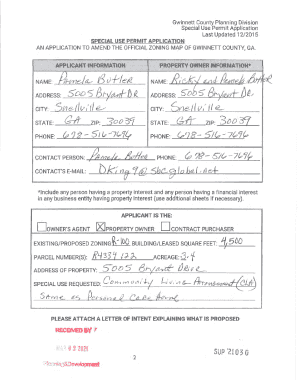 Gwinnett County Planning Division
Special Use Permit Application
Last Updated 12/2015
SPECIAL USE PERMIT APPLICATION
AN APPLICATION TO AMEND THE OFFICIAL ZONING MAP OF GWINNETT COUNTY, GA.
APPLICANT INFORMATION PROPERTY OWNER INFORMATION*
NAME: Pamela Butler NAME: Ricky and Pamela Butler
ADDRESS: 5005 Bryant Dr ADDRESS: 5005 Bryant Dr.
CITY: Snellville CITY: Snellville
STATE: GA ZIP: 30039 STATE: GA ZIP: 30039
PHONE: 678-516-7696 PHONE: 678-516-7696
CONTACT PERSON: Pamela Butler PHONE: 678-516-7696
CONTACT'S E-MAIL: DKing9@sbcglobal.net
*Include any person having a property interest and any person having a financial interest
in any business entity having property interest (use additional sheets if necessary).
APPLICANT IS THE:
OWNER'S AGENT X PROPERTY OWNER CONTRACT PURCHASER
EXISTING/PROPOSED ZONING R-100 BUILDING/LEASED SQUARE FEET: 4,500
PARCEL NUMBER(S): R4339 122 ACREAGE: 3.4
ADDRESS OF PROPERTY: 5005 Bryant Drive
SPECIAL USE REQUESTED: Community Living Arrangement (CLA)
Same as Personal Care Home
PLEASE ATTACH A LETTER OF INTENT EXPLAINING WHAT IS PROPOSED
RECEIVED BY
MAR 02 2021
2
SUP '21030
Planning & Development